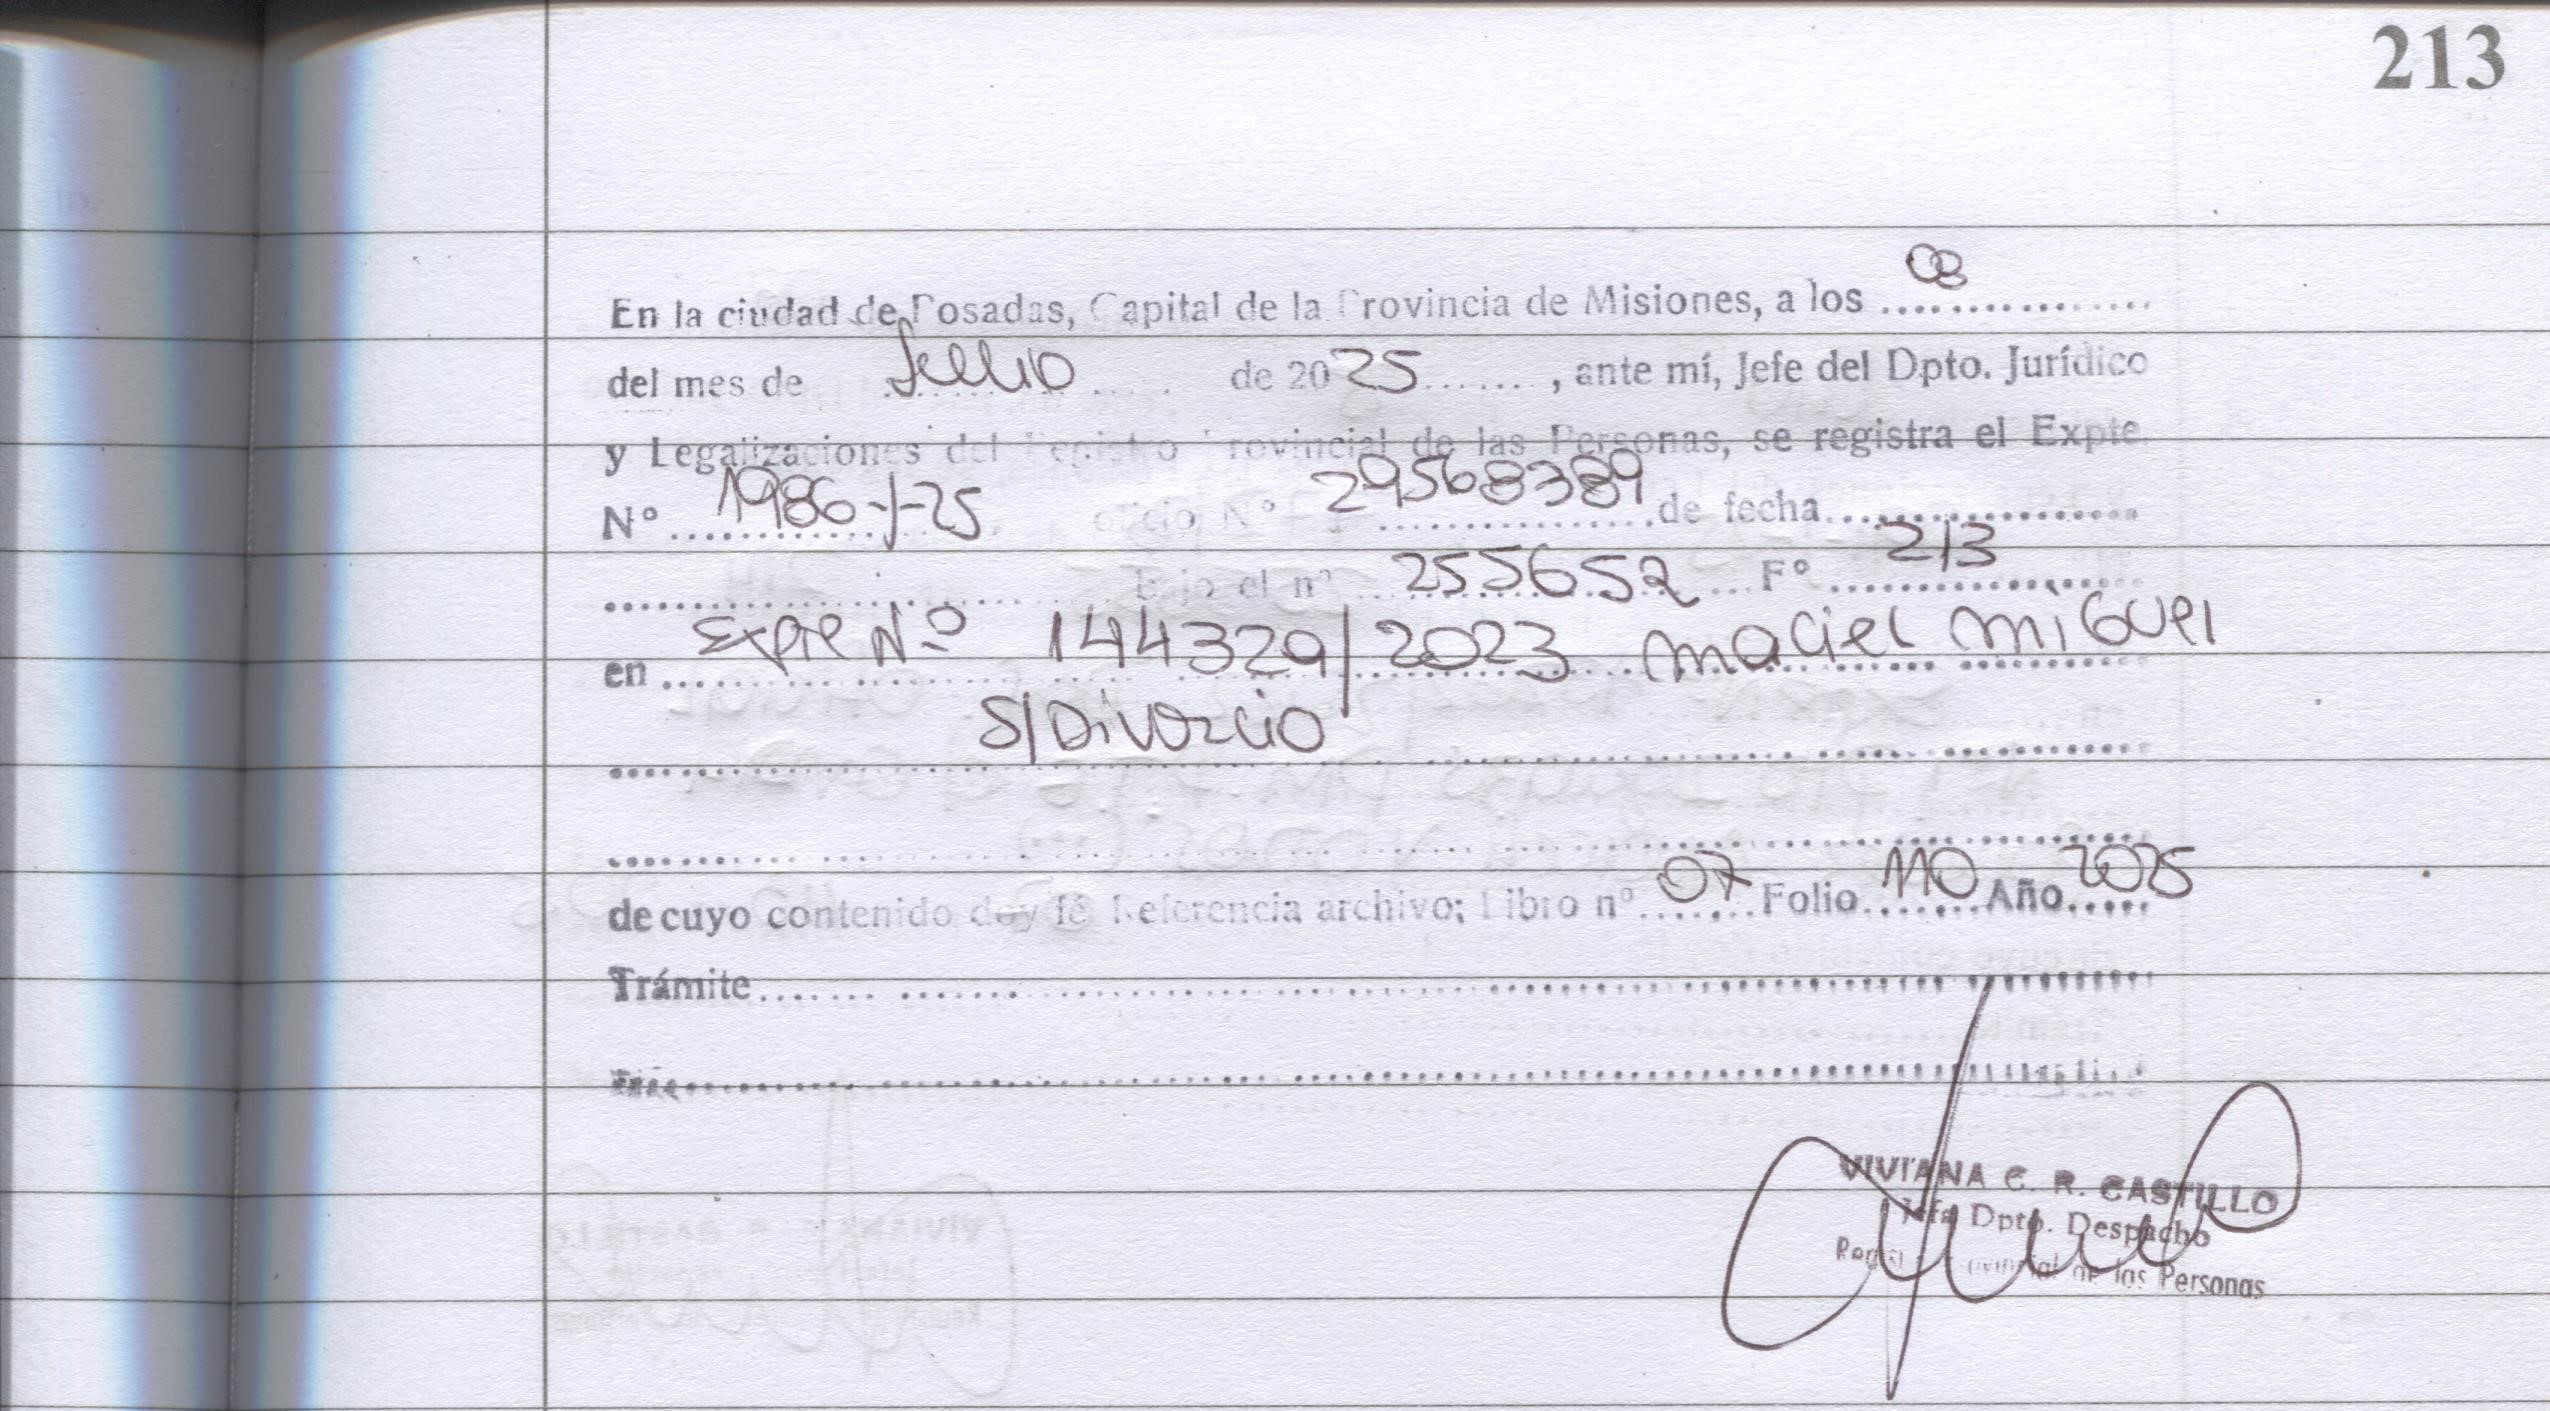 213
En la ciudad de Posadas, Capital de la Provincia de Misiones, a los 08
del mes de Julio de 2025, ante mí, Jefe del Dpto. Jurídico
y Legalizaciones del Registro Provincial de las Personas, se registra el Expte
Nº 1986-J-25 oficio Nº 29568389 de fecha
Bajo el nº 255652 Fº 213
en Expte Nº 144329/2023 Maciel Miguel
S/Divorcio
de cuyo contenido doy fé Referencia archivo; Libro nº 07 Folio 110 Año 2025
Trámite
VIVIANA C. R. CASTILLO
Jefa Dpto. Despacho
Registro Provincial de las Personas